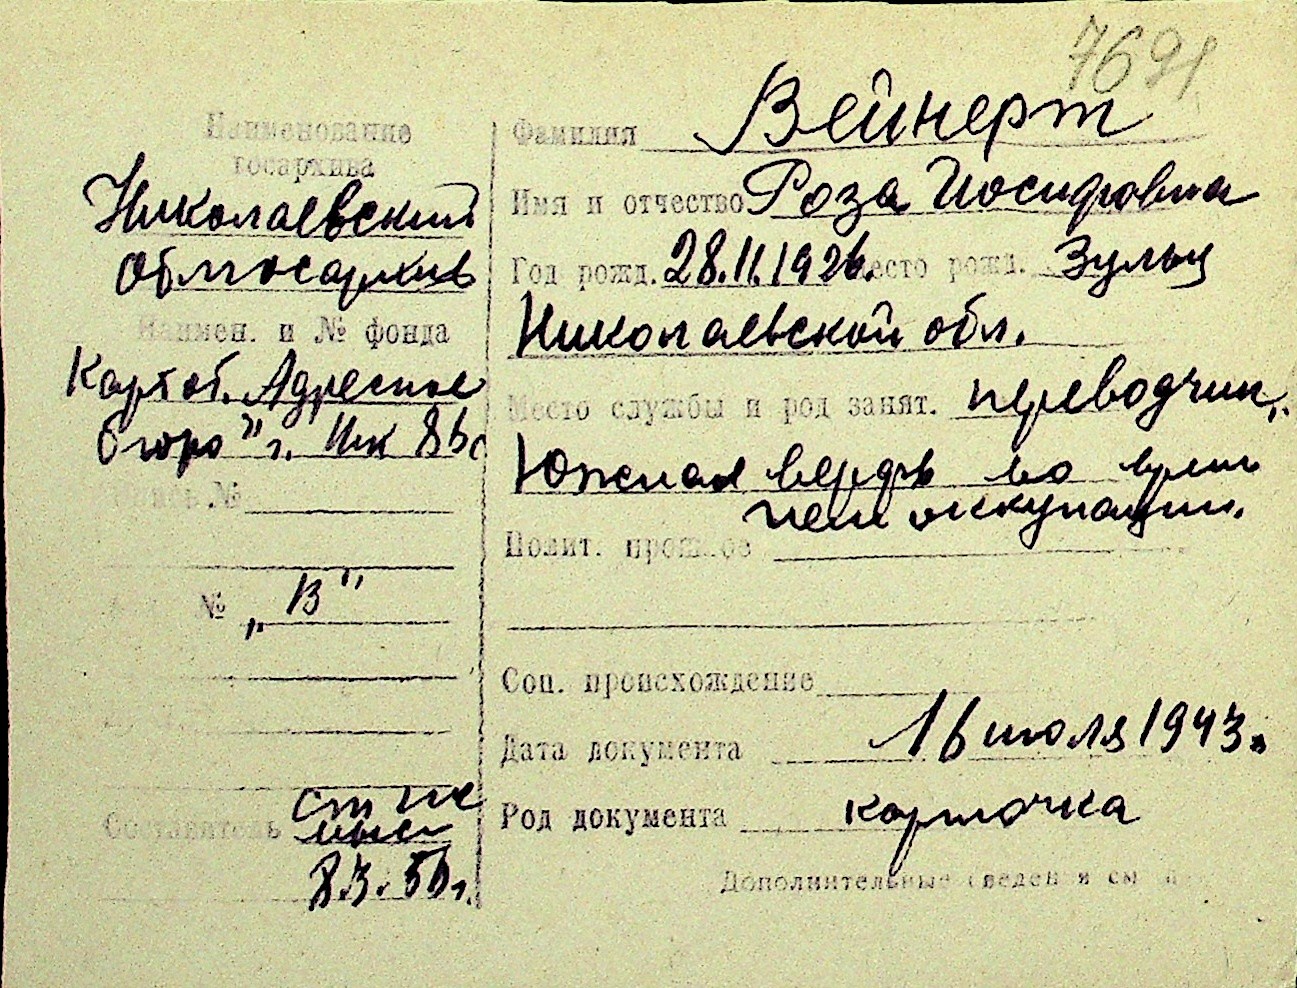 7691
Наименование
госархива
Николаевский
облгосархив
Наимен. и № фонда
Картот. Адресное
бюро" г. Ник
опись №
№ „В"
Составитель
8.3.50 г.
Фамилия Вейнерт
Имя и отчество Роза Иосифовна
Год рожд. 28.11.1926. Место рожд. Зульц
Николаевской обл.
Место службы и род занят. переводчик,
Южная верфь во время
оккупации.
Полит. прошлое
Соц. происхождение
Дата документа 16 июля 1943.
Род документа карточка
Дополнительные сведения см